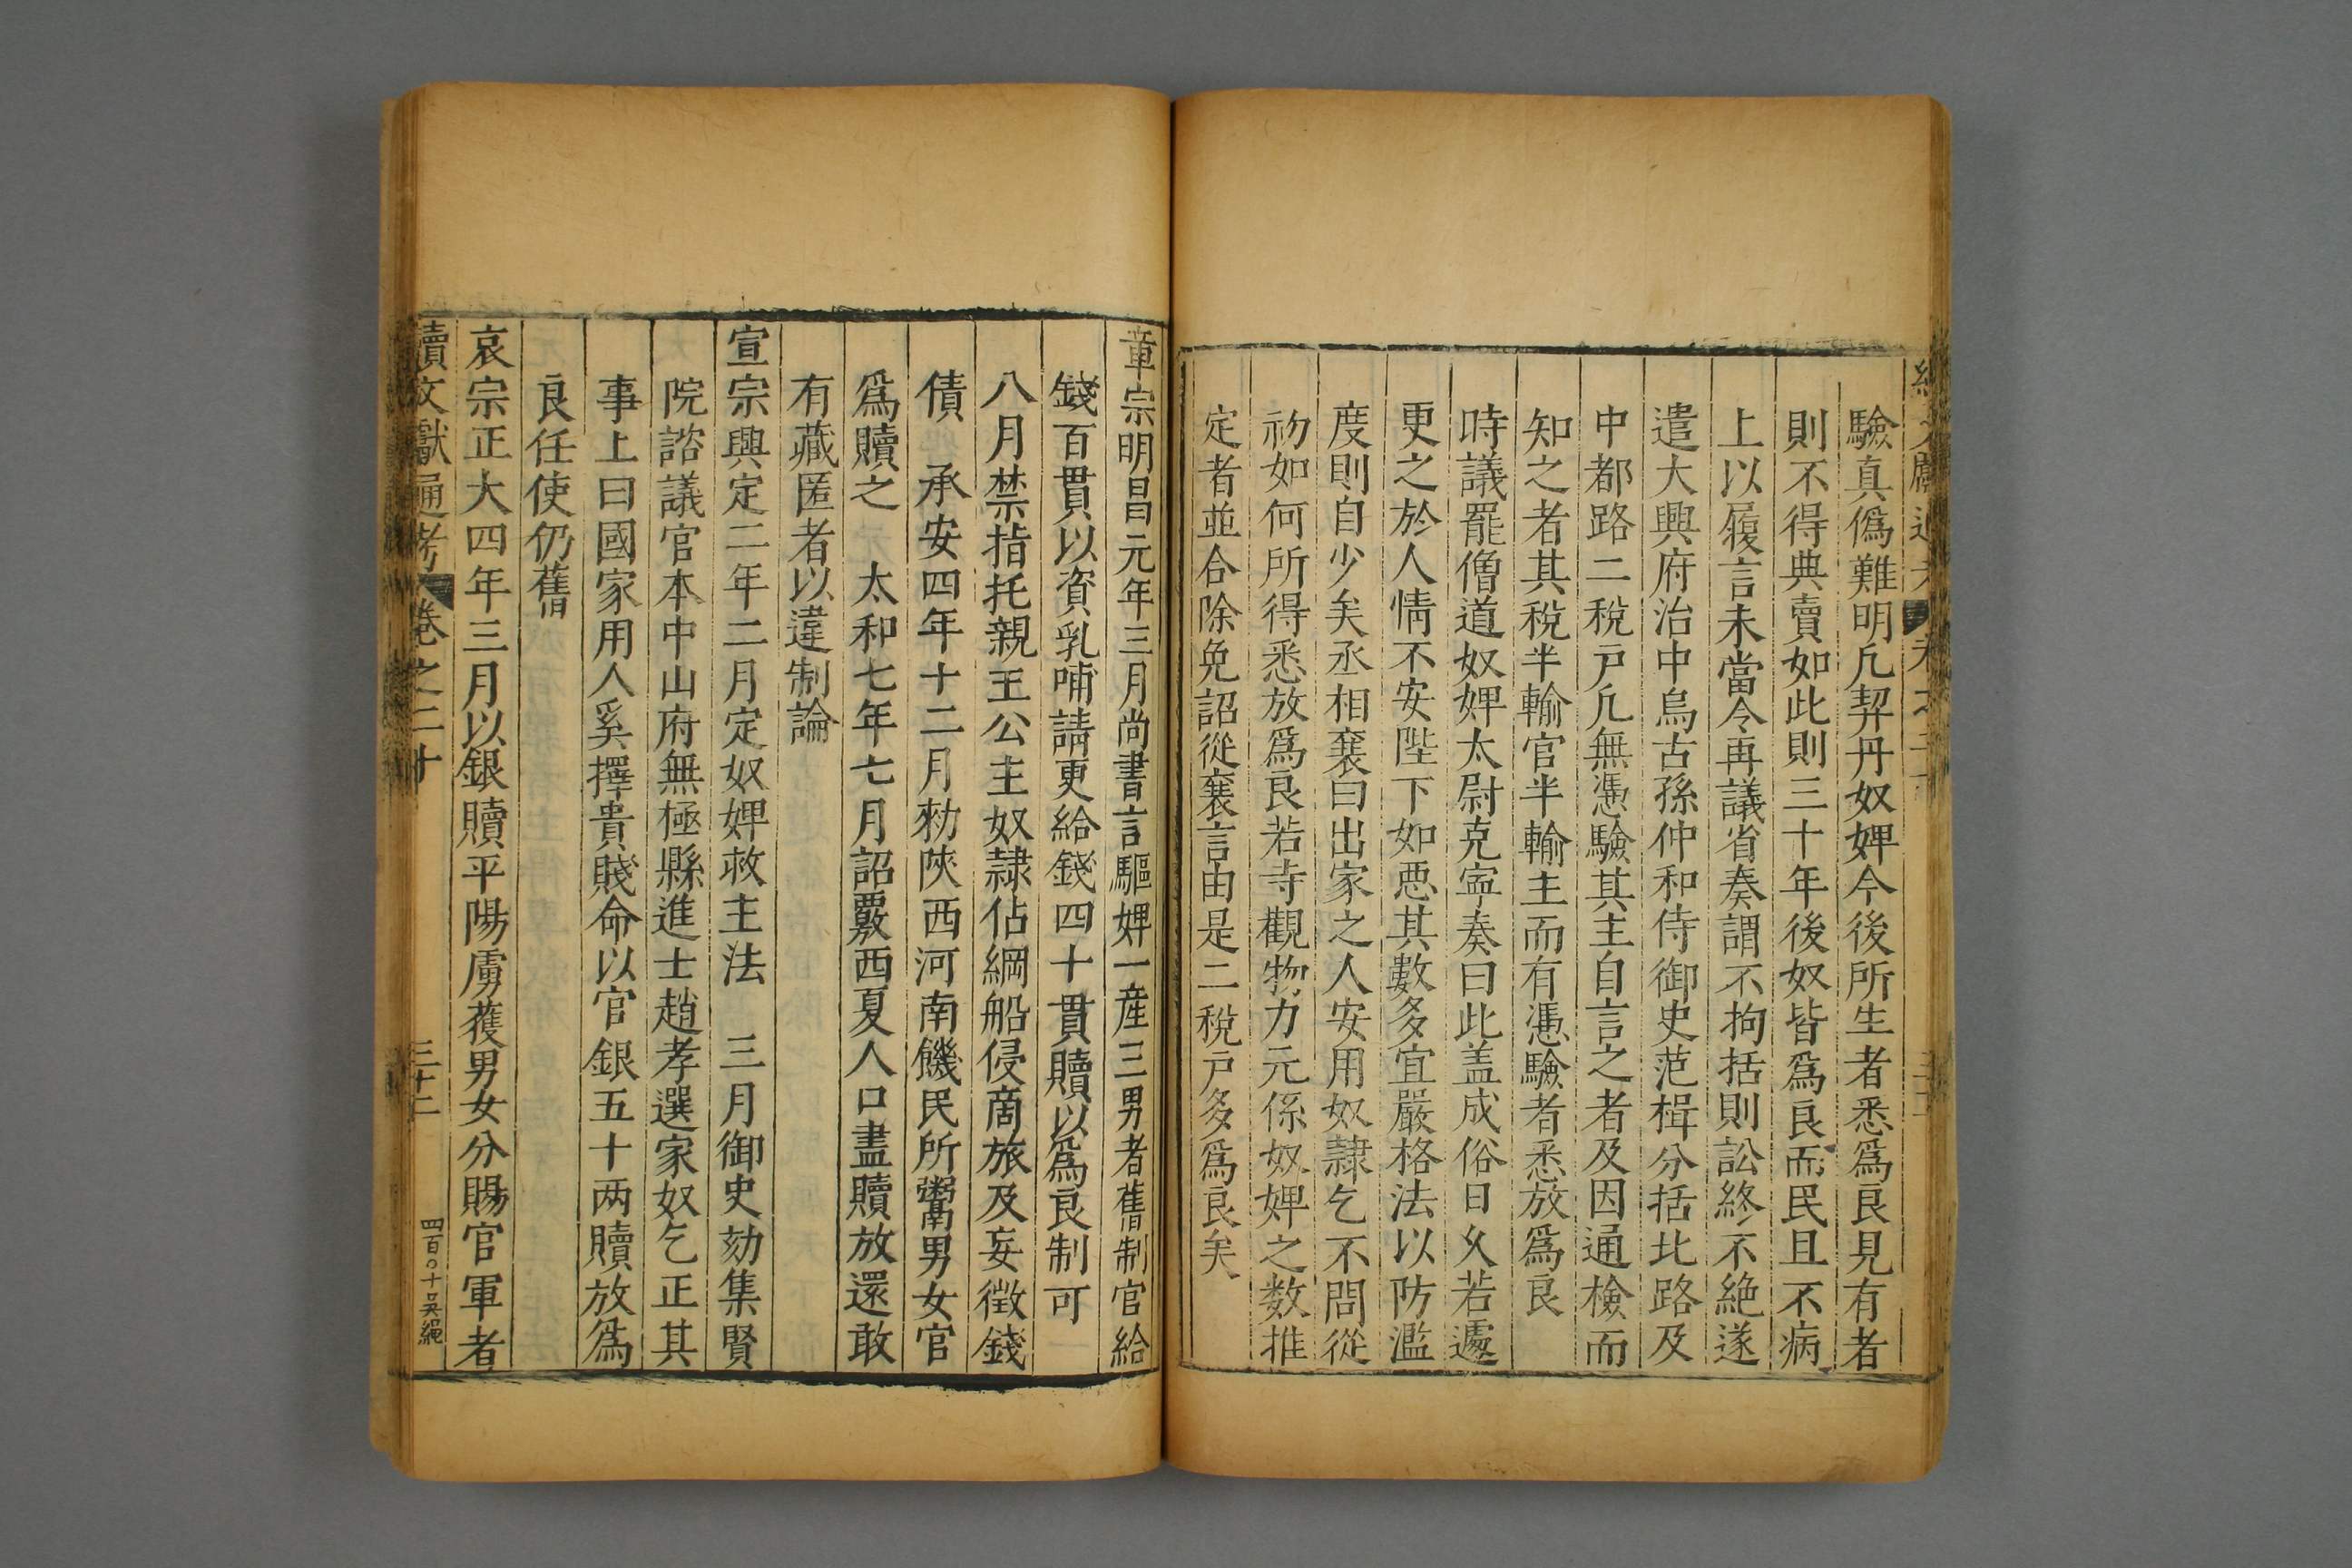 驗真僞難明凢契丹奴婢今後所生者悉爲良見有者
則不得典賣如此則三十年後奴皆爲良而民且不病
上以履言未當令再議省奏謂不拘括則訟終不絶遂
遣大興府治中烏古孫仲和侍御史范楫分括北路及
中都路二稅戶凢無憑驗其主自言之者及因通檢而
知之者其稅半輸官半輸主而有憑驗者悉放爲良
時議罷僧道奴婢太尉克寧奏曰此盖成俗日久若遽
更之於人情不安陛下如惡其數多宜嚴格法以防濫
度則自少矣丞相襄曰出家之人安用奴隷乞不問從
初如何所得悉放爲良若寺觀物力元係奴婢之数推
定者並合除免詔從襄言由是二稅戶多爲良矣
章宗明昌元年三月尚書言驅婢一産三男者舊制官給
錢百貫以資乳哺請更給錢四十貫贖以爲良制可
八月禁指托親王公主奴隷佔綱船侵商旅及妄徵錢
債　承安四年十二月勑陝西河南饑民所鬻男女官
爲贖之　太和七年七月詔覈西夏人口盡贖放還敢
有藏匿者以違制論
宣宗興定二年二月定奴婢救主法　三月御史劾集賢
院諮議官本中山府無極縣進士趙孝選家奴乞正其
事上曰國家用人奚擇貴賤命以官銀五十两贖放爲
良任使仍舊
哀宗正大四年三月以銀贖平陽虜獲男女分賜官軍者
續文獻通考 卷之二十 三十二 四百〇十 吴綎